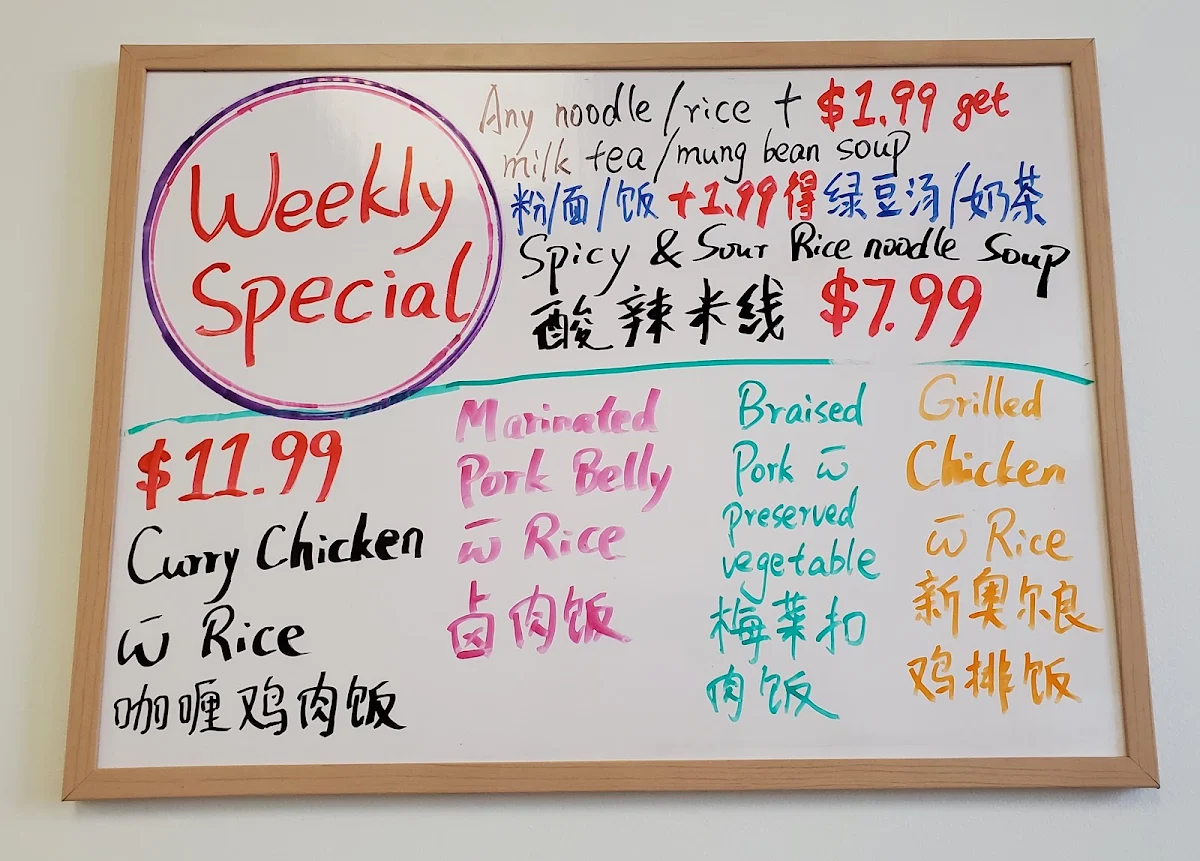 Weekly
Special
Any noodle/rice + $1.99 get
milk tea/mung bean soup
粉/面/饭 +1.99得 绿豆汤/奶茶
Spicy & Sour Rice noodle Soup
酸辣米线 $7.99
$11.99
Curry Chicken
w̅ Rice
咖喱鸡肉饭
Marinated
Pork Belly
w̅ Rice
卤肉饭
Braised
Pork w̅
preserved
vegetable
梅菜扣
肉饭
Grilled
Chicken
w̅ Rice
新奥尔良
鸡排饭